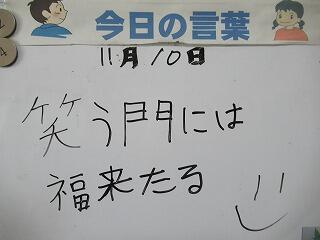 今日の言葉
11月10日
笑う門には
福来たる
4